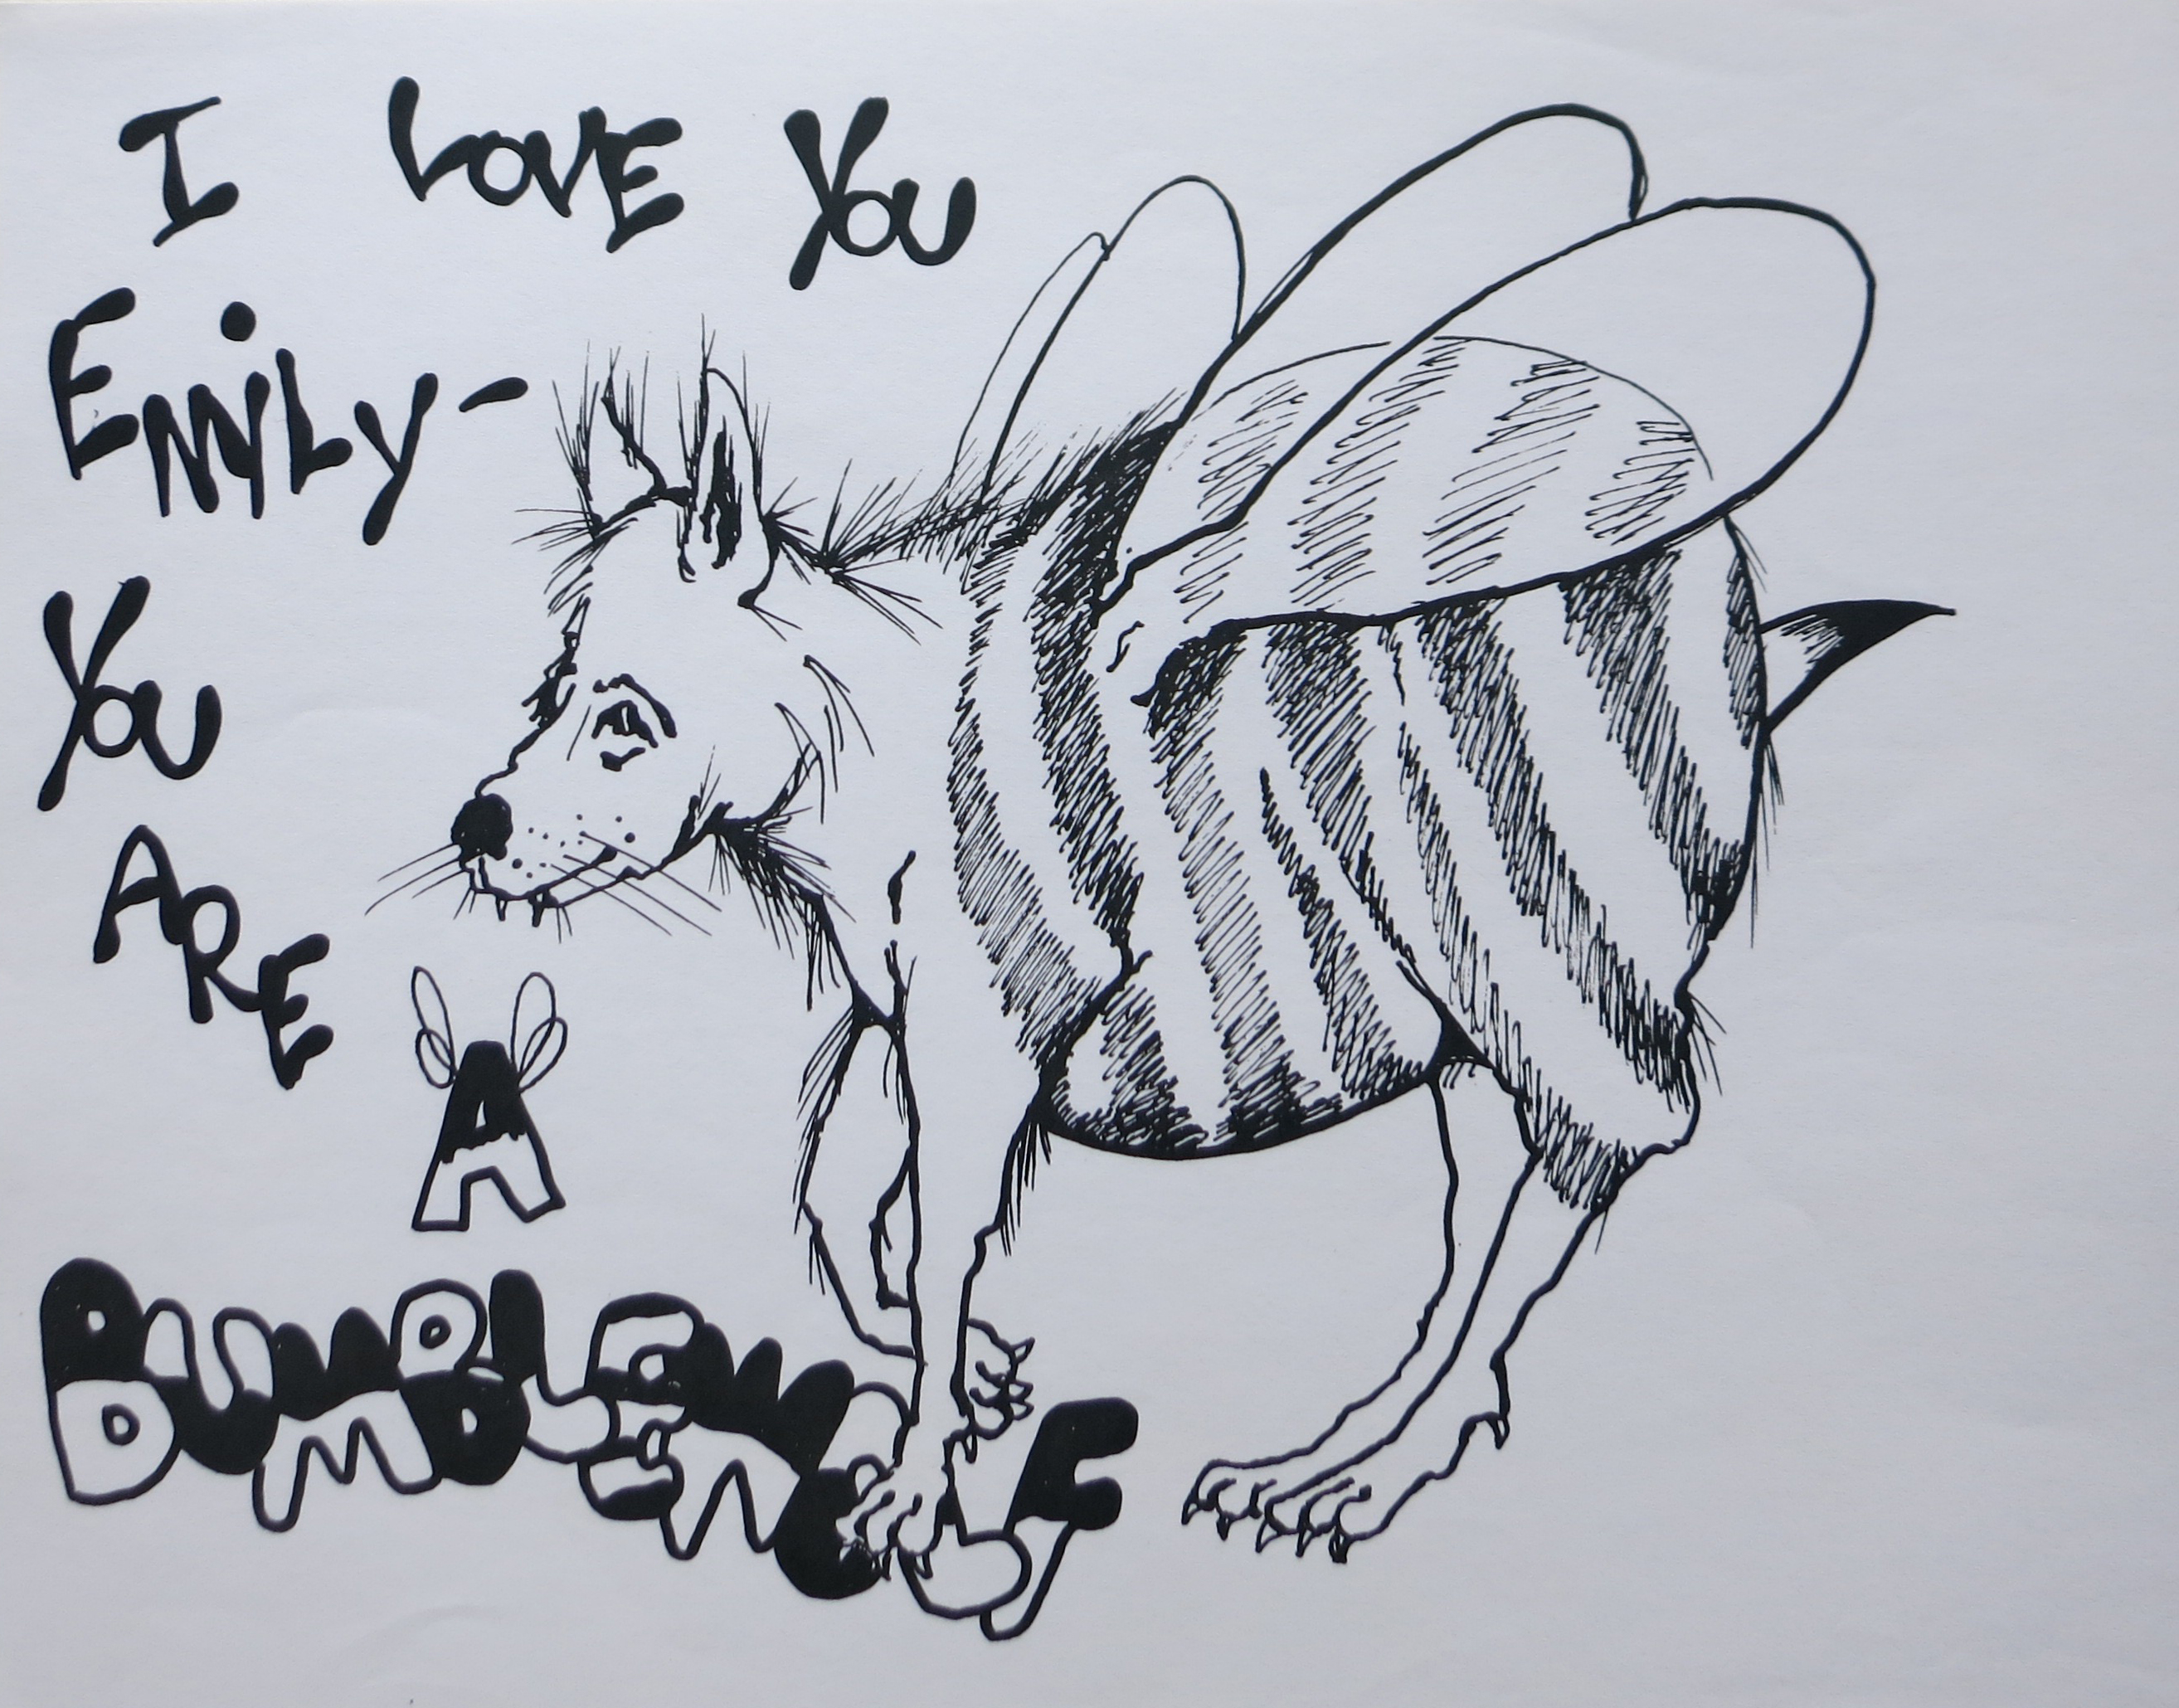 I LOVE YOU
EMiLy-
YOU
ARE
A
BUMBLEWOLF